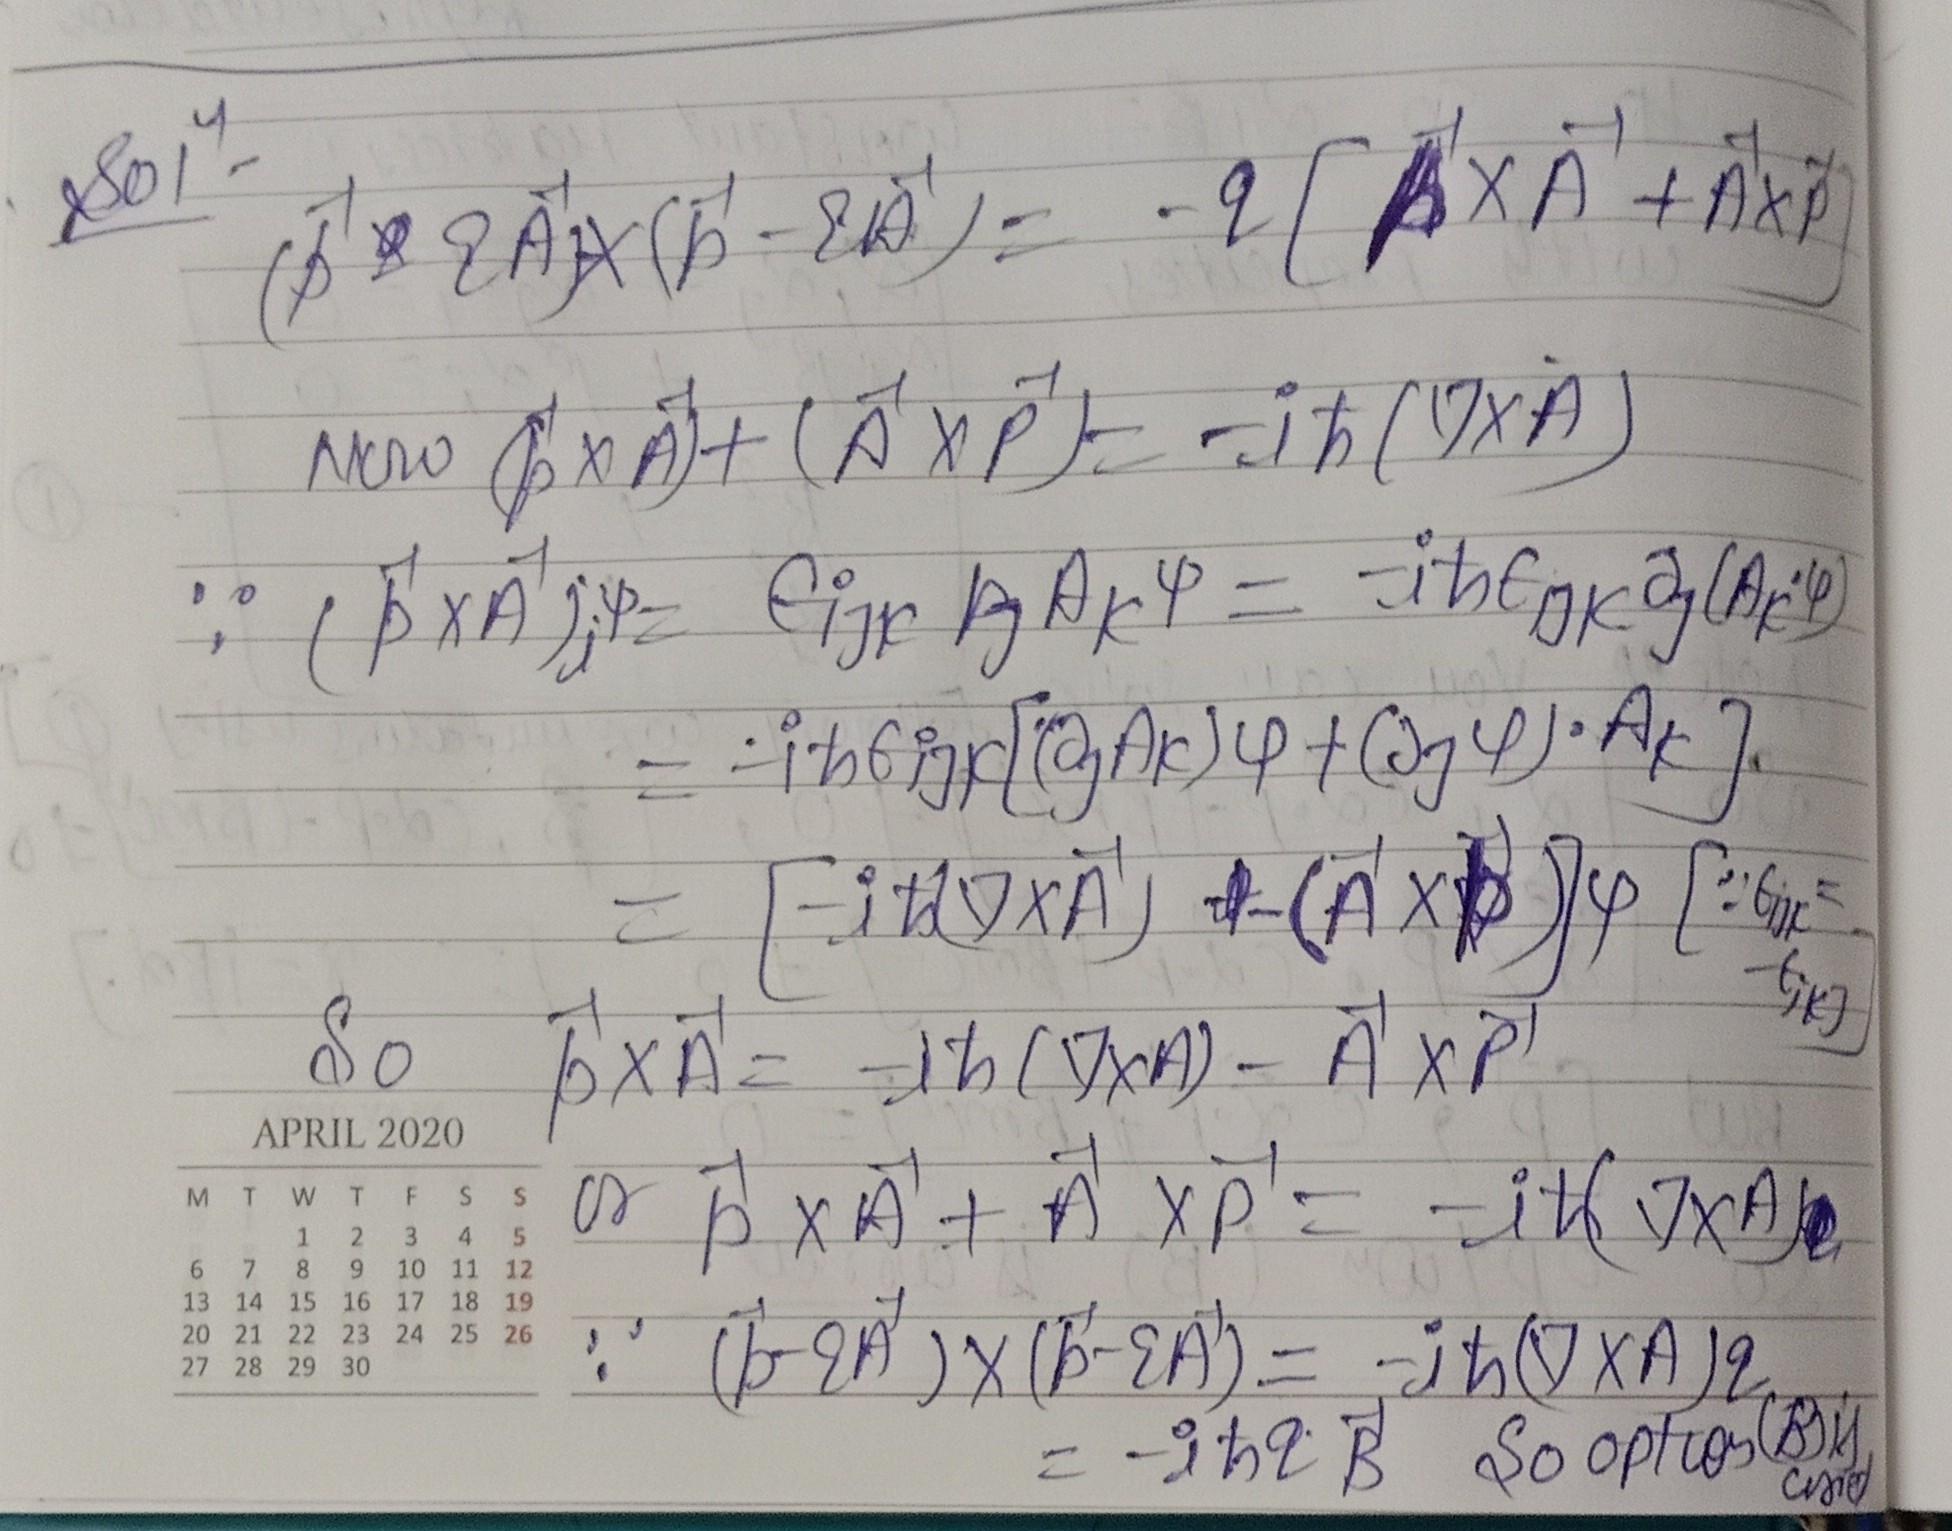 Solⁿ -
(p⃗ - qA⃗)×(p⃗ - qA⃗) = -q[p⃗ × A⃗ + A⃗ × P⃗]
Now (p⃗ × A⃗) + (A⃗ × P⃗) = -iħ(∇×A)
∵ (p⃗ × A⃗)ᵢψ = ϵijk pj Akψ = -iħϵijk ∂j(Akψ)
= -iħϵijk[(∂jAk)ψ + (∂jψ)·Ak].
= [-iħ(∇×A⃗) - (A⃗ × p⃗)]ψ [∵ ϵijk =
-ϵikj]
So p⃗ × A⃗ = -iħ(∇×A) - A⃗ × P⃗
APRIL 2020
or p⃗ × A⃗ + A⃗ × P⃗ = -iħ(∇×A)
M T W T F S S
1 2 3 4 5
6 7 8 9 10 11 12
13 14 15 16 17 18 19
20 21 22 23 24 25 26
27 28 29 30
∵ (p⃗ - qA⃗)×(p⃗ - qA⃗) = -iħ(∇×A)q
= -iħq B⃗ So option (B) is